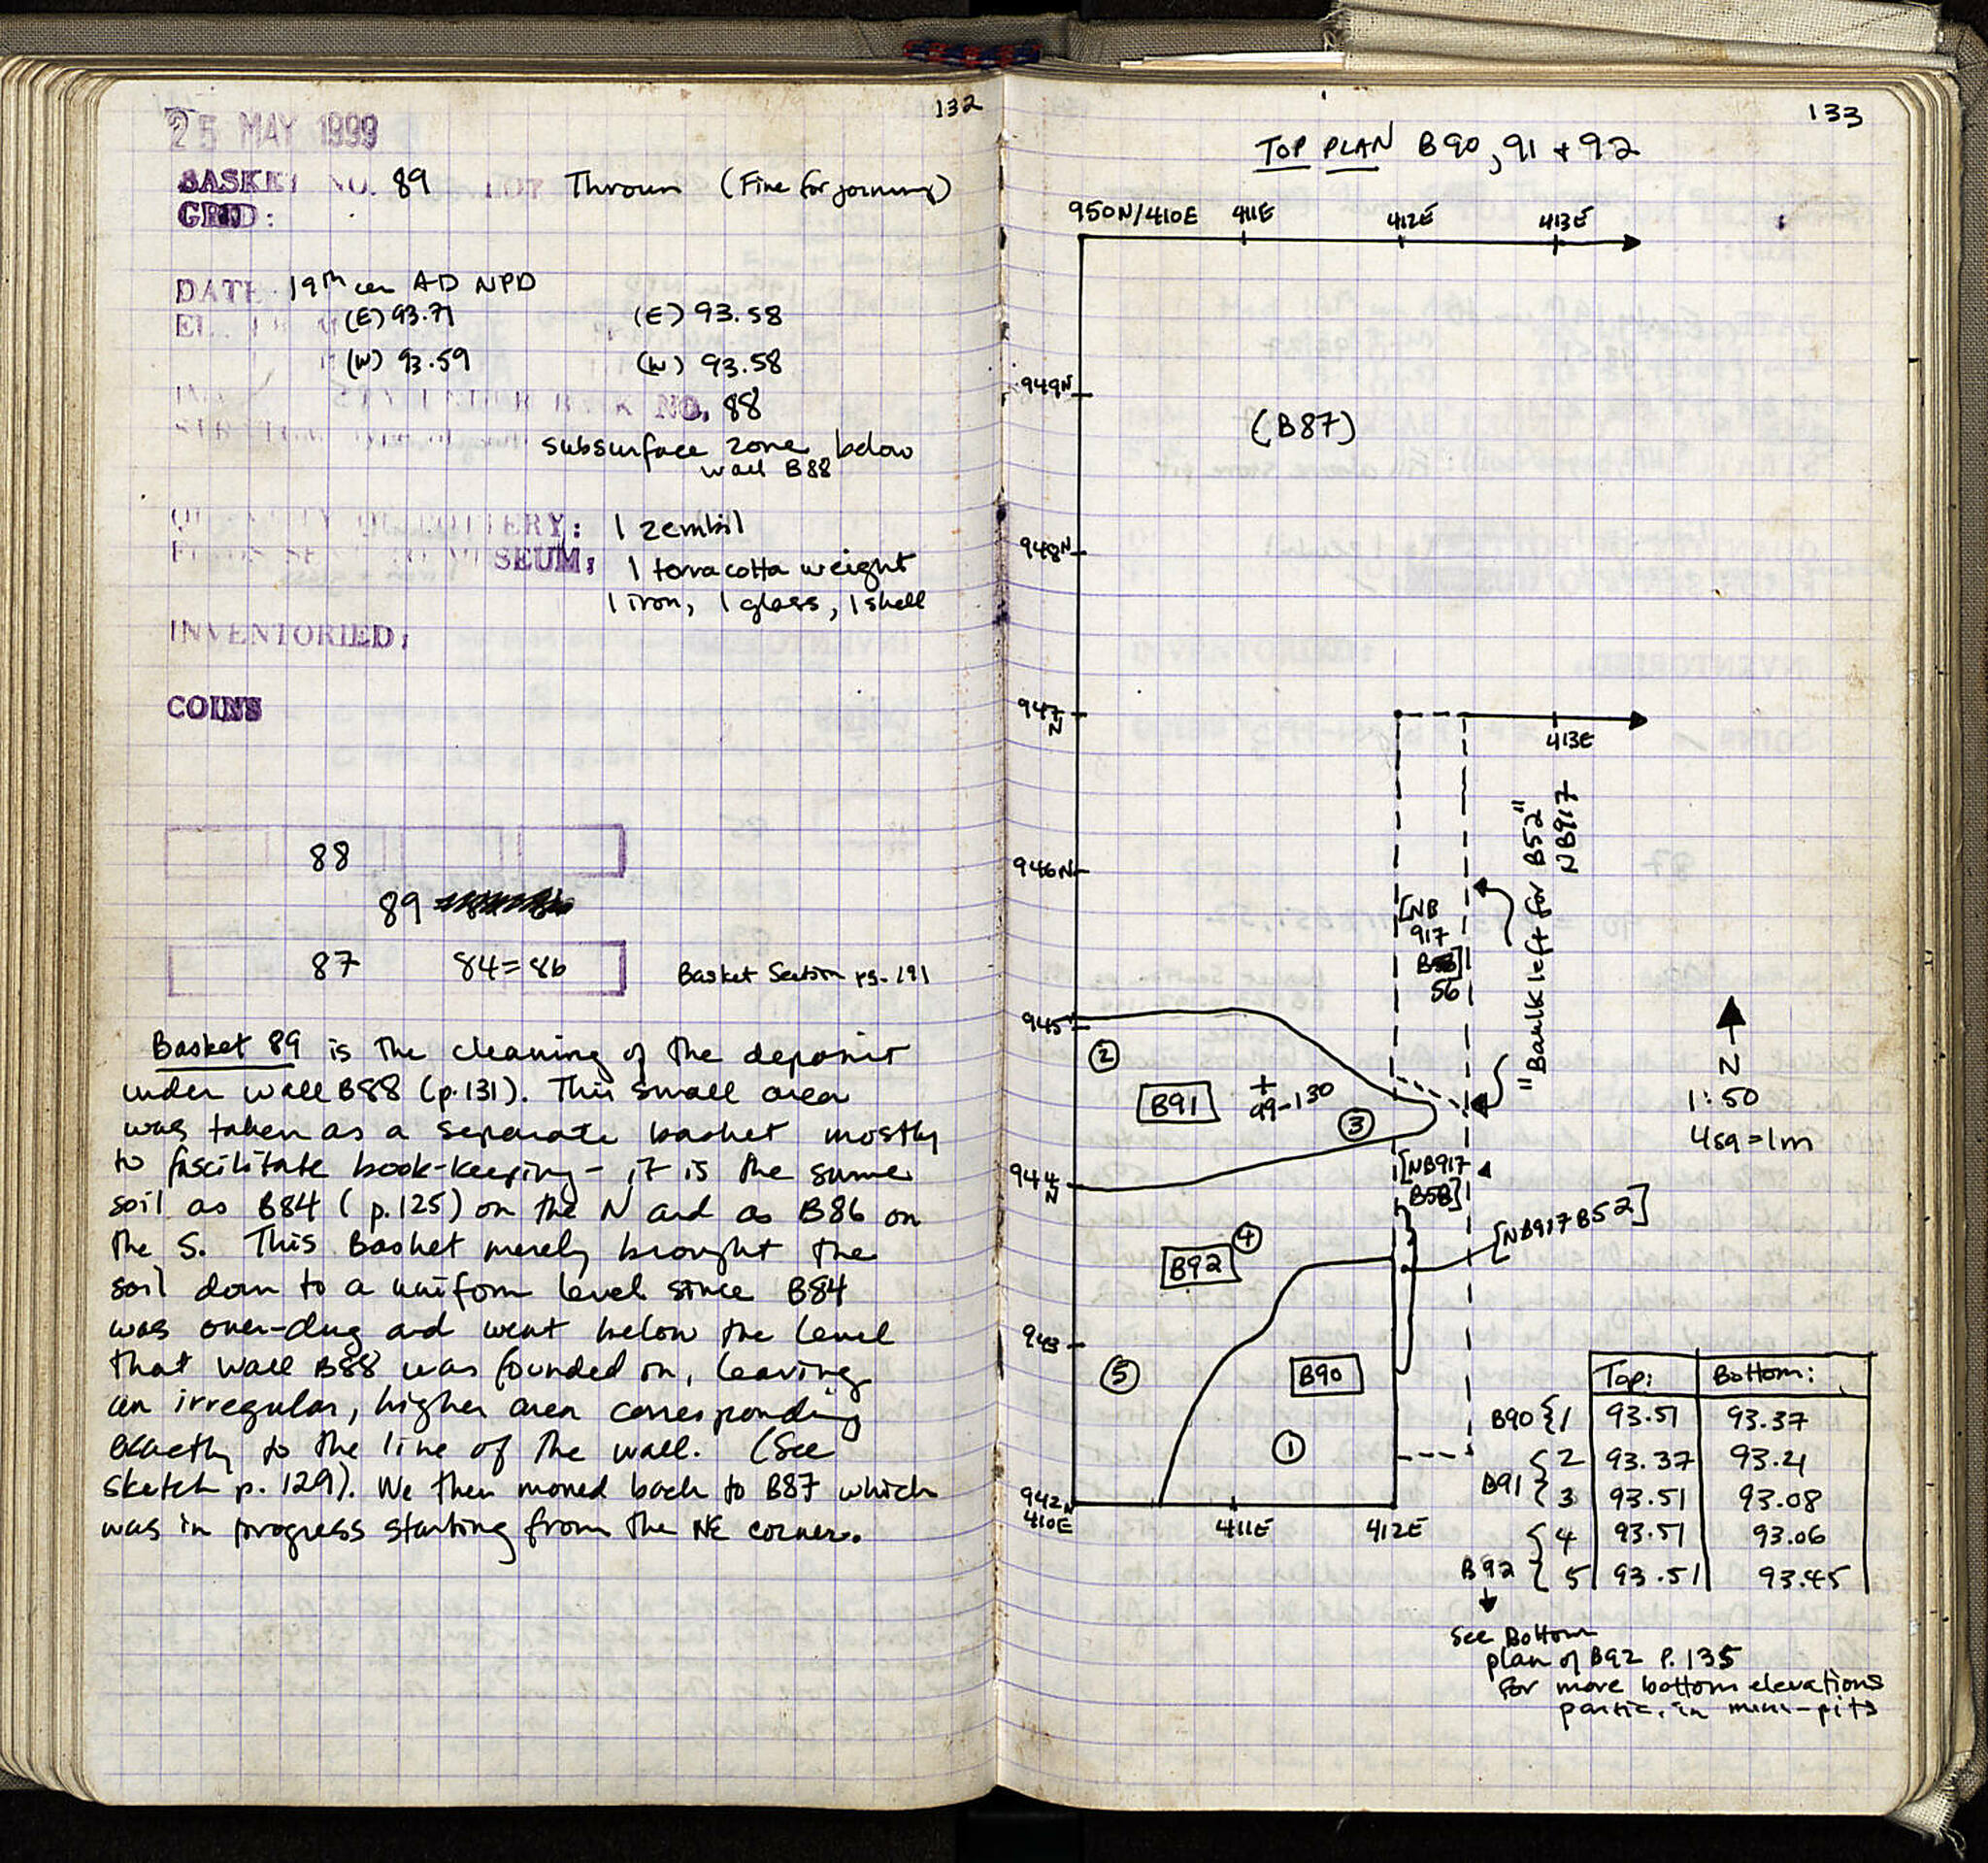 132
25 MAY 1999
BASKET NO. 89 LOT Thrown (Fine for joining)
GRID:
DATE 19th cen AD NPD
(E) 93.71 (E) 93.58
(W) 93.59 (W) 93.58
NO. 88
subsurface zone below
wall B88
QUANTITY OF POTTERY: 1 zembil
MUSEUM: 1 terracotta weight
1 iron, 1 glass, 1 shell
INVENTORIED:
COINS
88
89
87 84=86 Basket Section pg. 191
Basket 89 is the cleaning of the deposit
under wall B88 (p.131). This small area
was taken as a separate basket mostly
to fascilitate book-keeping - it is the same
soil as B84 (p.125) on the N and as B86 on
the S. This Basket merely brought the
soil down to a uniform level since B84
was over-dug and went below the level
that wall B88 was founded on, leaving
an irregular, higher area corresponding
exactly to the line of the wall. (See
sketch p. 129). We then moved back to B87 which
was in progress starting from the NE corner.
133
TOP PLAN B90, 91 + 92
950N/410E 411E 412E 413E
949N
(B87)
948N
947N
413E
"Baulk left for B52"
NB917
946N
[NB
917
B56]
56
945
2
B91
+
99-130
3
N
1:50
4sq=1m
944N
[NB917
B58]
[NB917 B52]
4
B92
943
5
B90
1
942N
410E 411E 412E
Top: Bottom:
B90 { 1 93.51 93.37
B91 { 2 93.37 93.21
3 93.51 93.08
B92 { 4 93.51 93.06
5 93.51 93.45
See Bottom
plan of B92 P. 135
for more bottom elevations
partic. in mini-pits